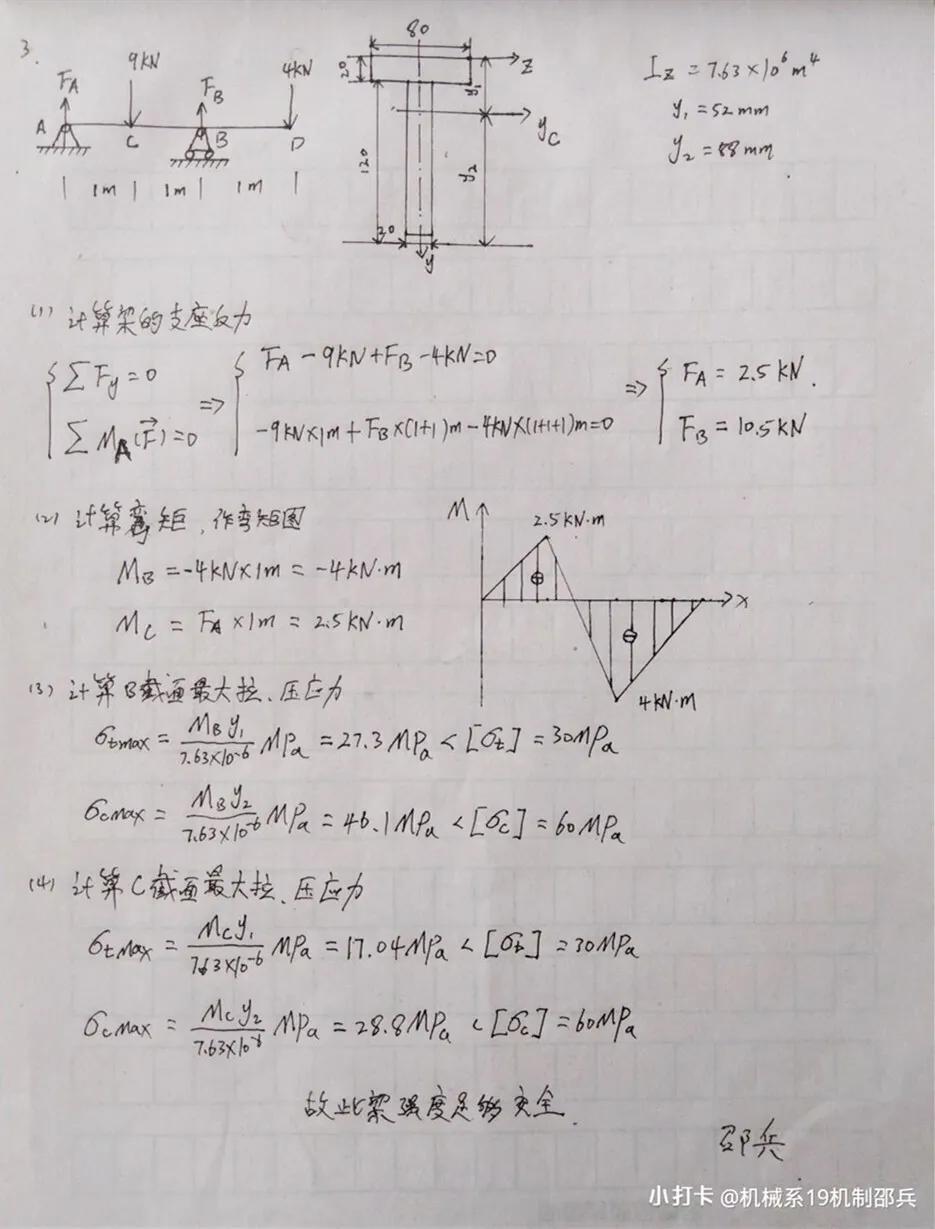 3.
9KN
4KN
FA
FB
A
C
B
D
1m 1m 1m
80
20
z
y1
yC
120
y2
20
y
Iz = 7.63×10⁶m⁴
y1 = 52mm
y2 = 88mm
(1) 计算梁的支座反力
{ ΣFy = 0 => { FA - 9KN + FB - 4KN = 0 => { FA = 2.5KN.
ΣMA(F⃗) = 0 -9KN×1m + FB×(1+1)m - 4KN×(1+1+1)m = 0 FB = 10.5KN
(2) 计算弯矩、作弯矩图
MB = -4KN×1m = -4KN·m
MC = FA×1m = 2.5KN·m
M
2.5KN·m
⊕
x
⊖
4KN·m
(3) 计算B截面最大拉、压应力
σtmax = MBy1/7.63×10⁻⁶ MPa = 27.3MPa < [σt] = 30MPa
σcmax = MBy2/7.63×10⁻⁶ MPa = 46.1MPa < [σc] = 60MPa
(4) 计算C截面最大拉、压应力
σtmax = MCy1/7.63×10⁻⁶ MPa = 17.04MPa < [σt] = 30MPa
σcmax = MCy2/7.63×10⁻⁶ MPa = 28.8MPa < [σc] = 60MPa
故此梁强度足够安全.
邵兵
小打卡 @机械系19机制邵兵